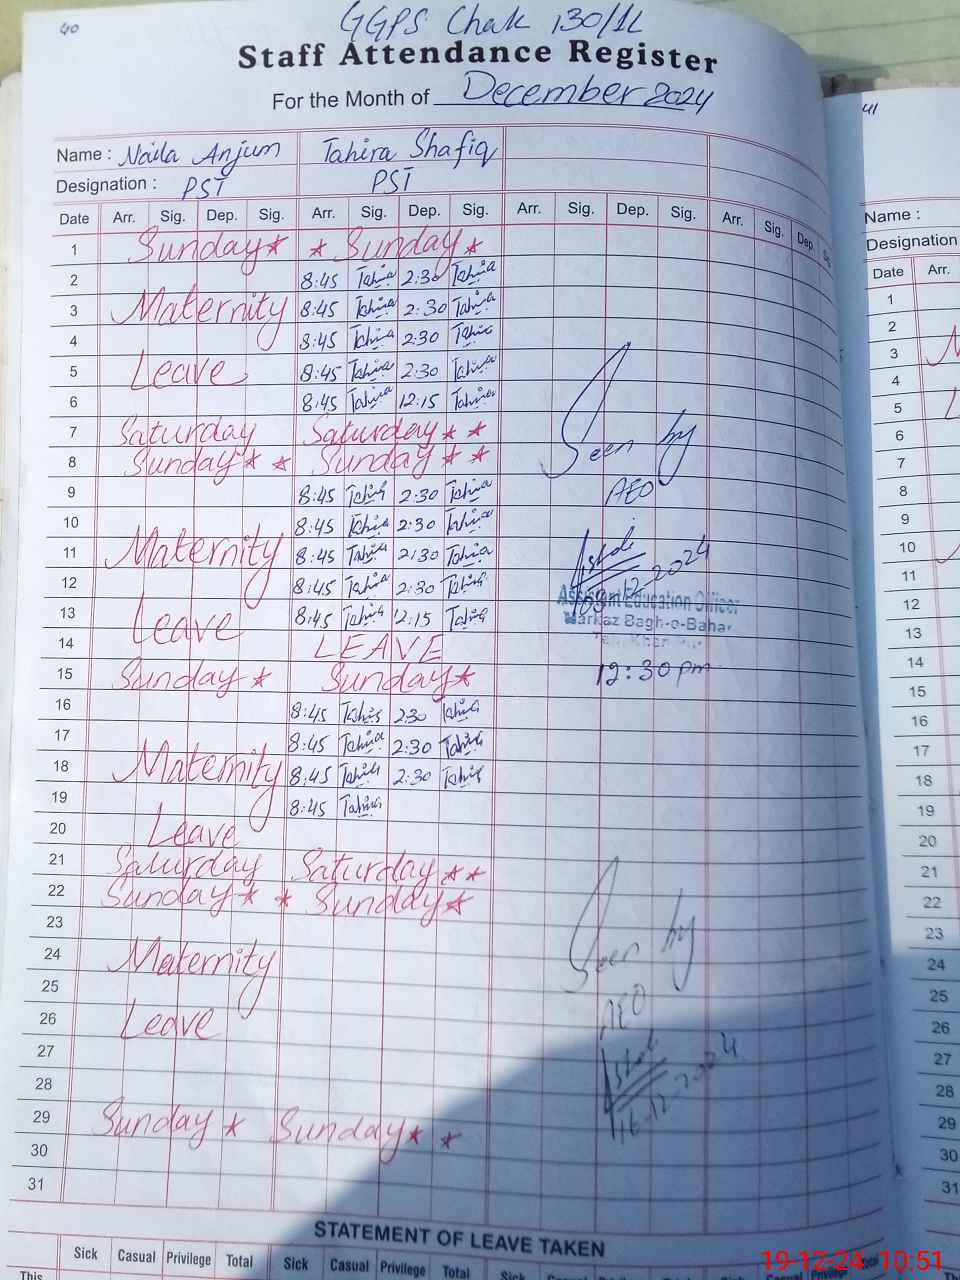 40
GGPS Chak 130/1L
Staff Attendance Register
For the Month of December 2024
Name : Naila Anjum Tahira Shafiq
Designation : PST PST
Date Arr. Sig. Dep. Sig. Arr. Sig. Dep. Sig. Arr. Sig. Dep. Sig. Arr. Sig. Dep. Sig.
1 Sunday * * Sunday *
2 8:45 Tahira 2:30 Tahira
3 Maternity 8:45 Tahira 2:30 Tahira
4 8:45 Tahira 2:30 Tahira
5 Leave 8:45 Tahira 2:30 Tahira
6 8:45 Tahira 12:15 Tahira
7 Saturday Saturday * *
8 Sunday * * Sunday * *
Seen by
9 8:45 Tahira 2:30 Tahira
AEO
10 8:45 Tahira 2:30 Tahira
11 Maternity 8:45 Tahira 2:30 Tahira
12 8:45 Tahira 2:30 Tahira
09.12.2024
Assistant Education Officer
13 Leave 8:45 Tahira 12:15 Tahira
Markaz Bagh-o-Bahar
14 LEAVE
15 Sunday * Sunday *
12:30 pm
16 8:45 Tahira 2:30 Tahira
17 8:45 Tahira 2:30 Tahira
18 Maternity 8:45 Tahira 2:30 Tahira
19 8:45 Tahira
20 Leave
21 Saturday Saturday * *
22 Sunday * * Sunday *
23
24 Maternity
Seen by
25
26 Leave
AEO
27
28
16.12.2024
29 Sunday * Sunday * *
30
31
STATEMENT OF LEAVE TAKEN
Sick Casual Privilege Total Sick Casual Privilege Total Sick Casual Privilege Total Sick Casual Privilege Total
This
41
Name :
Designation
Date Arr.
1
2
3
4
5
6
7
8
9
10
11
12
13
14
15
16
17
18
19
20
21
22
23
24
25
26
27
28
29
30
31
19-12-24 10:51